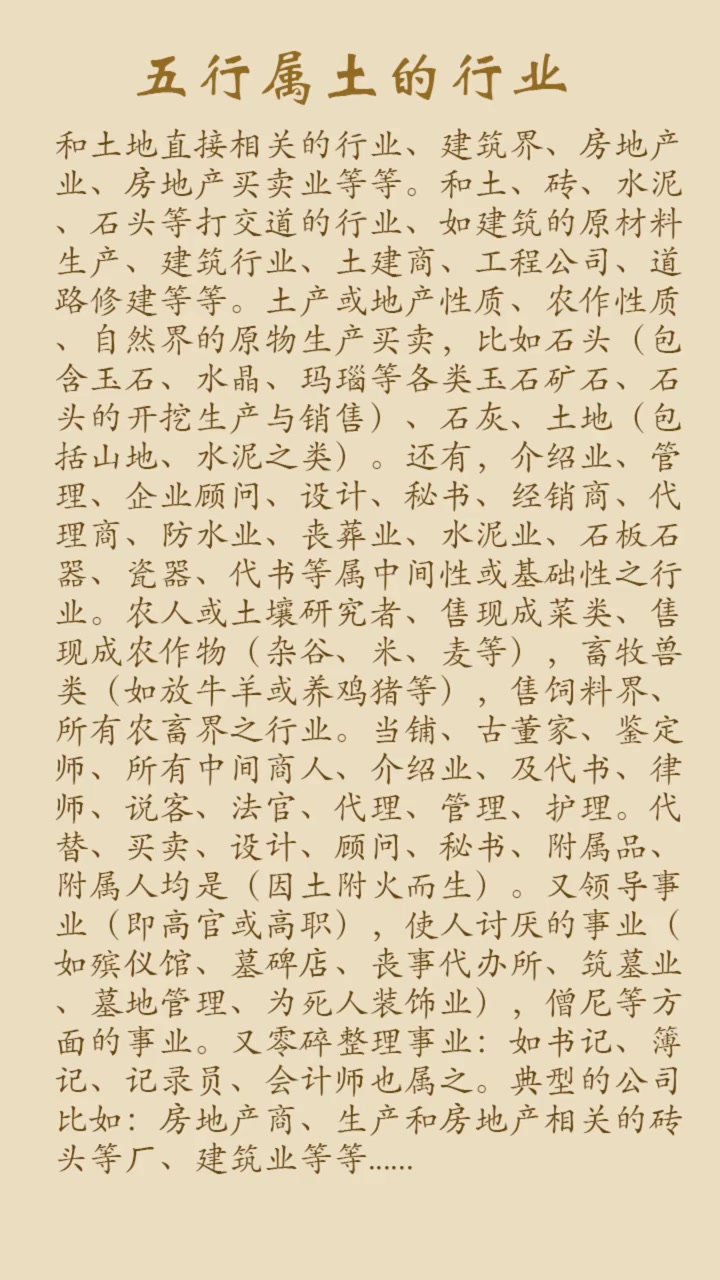 五行属土的行业
和土地直接相关的行业、建筑界、房地产
业、房地产买卖业等等。和土、砖、水泥
、石头等打交道的行业、如建筑的原材料
生产、建筑行业、土建商、工程公司、道
路修建等等。土产或地产性质、农作性质
、自然界的原物生产买卖，比如石头（包
含玉石、水晶、玛瑙等各类玉石矿石、石
头的开挖生产与销售）、石灰、土地（包
括山地、水泥之类）。还有，介绍业、管
理、企业顾问、设计、秘书、经销商、代
理商、防水业、丧葬业、水泥业、石板石
器、瓷器、代书等属中间性或基础性之行
业。农人或土壤研究者、售现成菜类、售
现成农作物（杂谷、米、麦等），畜牧兽
类（如放牛羊或养鸡猪等），售饲料界、
所有农畜界之行业。当铺、古董家、鉴定
师、所有中间商人、介绍业、及代书、律
师、说客、法官、代理、管理、护理。代
替、买卖、设计、顾问、秘书、附属品、
附属人均是（因土附火而生）。又领导事
业（即高官或高职），使人讨厌的事业（
如殡仪馆、墓碑店、丧事代办所、筑墓业
、墓地管理、为死人装饰业），僧尼等方
面的事业。又零碎整理事业：如书记、簿
记、记录员、会计师也属之。典型的公司
比如：房地产商、生产和房地产相关的砖
头等厂、建筑业等等……